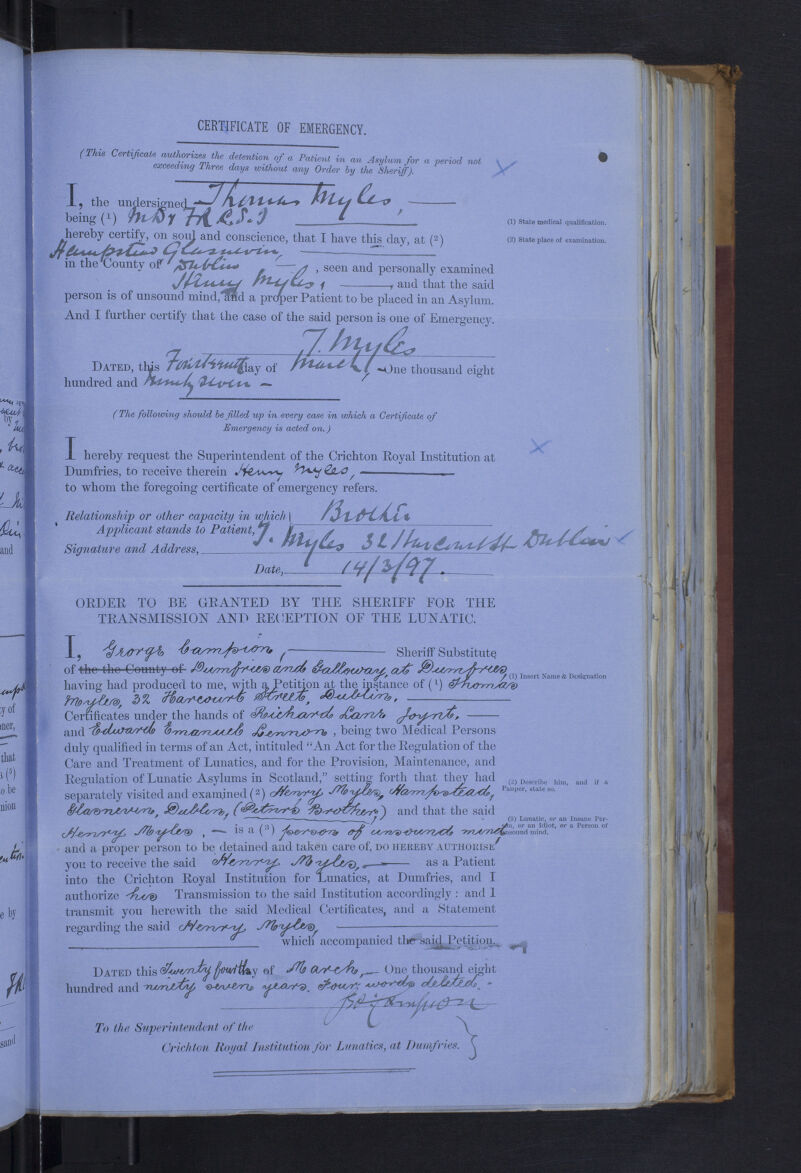 CERTIFICATE OF EMERGENCY.
(This Certificate authorizes the detention of a Patient in an Asylum for a period not
exceeding Three days without any Order by the Sheriff).
I, the undersigned Thomas Myles,
being (1) M.D. & F.R.C.S.I
(1) State medical qualification.
hereby certify, on soul and conscience, that I have this day, at (2)
(2) State place of examination.
Hampstead Glasnevin,
in the County of Dublin, seen and personally examined
Henry Myles, and that the said
person is of unsound mind, and a proper Patient to be placed in an Asylum.
And I further certify that the case of the said person is one of Emergency.
T. Myles
DATED, this Fourteenth day of March, One thousand eight
hundred and ninety seven –
(The following should be filled up in every case in which a Certificate of
Emergency is acted on.)
I hereby request the Superintendent of the Crichton Royal Institution at
Dumfries, to receive therein Henry Myles,
to whom the foregoing certificate of emergency refers.
Relationship or other capacity in which
Applicant stands to Patient, Brother
Signature and Address, T. Myles 32 Harcourt St Dublin
Date, 14/3/97.
ORDER TO BE GRANTED BY THE SHERIFF FOR THE
TRANSMISSION AND RECEPTION OF THE LUNATIC.
I, George Campion, Sheriff Substitute
of the the County of Dumfries and Galloway, at Dumfries,
having had produced to me, with a Petition at the instance of (1) Thomas
(1) Insert Name & Designation
Myles, 32 Harcourt Street, Dublin,
Certificates under the hands of Richard Lane Joynt,
and Edward Emanuel Lennon, being two Medical Persons
duly qualified in terms of an Act, intituled "An Act for the Regulation of the
Care and Treatment of Lunatics, and for the Provision, Maintenance, and
Regulation of Lunatic Asylums in Scotland," setting forth that they had
separately visited and examined (2) Henry Myles, Hampstead,
(2) Describe him, and if a
Pauper, state so.
Glasneven, Dublin, (Petnrs Brother) and that the said
Henry Myles, – is a (3) person of unsound mind
(3) Lunatic, or an Insane Per-
son, or an Idiot, or a Person of
unsound mind.
and a proper person to be detained and taken care of, DO HEREBY AUTHORISE
you to receive the said Henry Myles, as a Patient
into the Crichton Royal Institution for Lunatics, at Dumfries, and I
authorize his Transmission to the said Institution accordingly: and I
transmit you herewith the said Medical Certificates, and a Statement
regarding the said Henry Myles,
which accompanied the said Petition.
DATED this Twenty fourth day of March, One thousand eight
hundred and ninety seven years. Four words deleted. -
To the Superintendent of the
Crichton Royal Institution for Lunatics, at Dumfries.